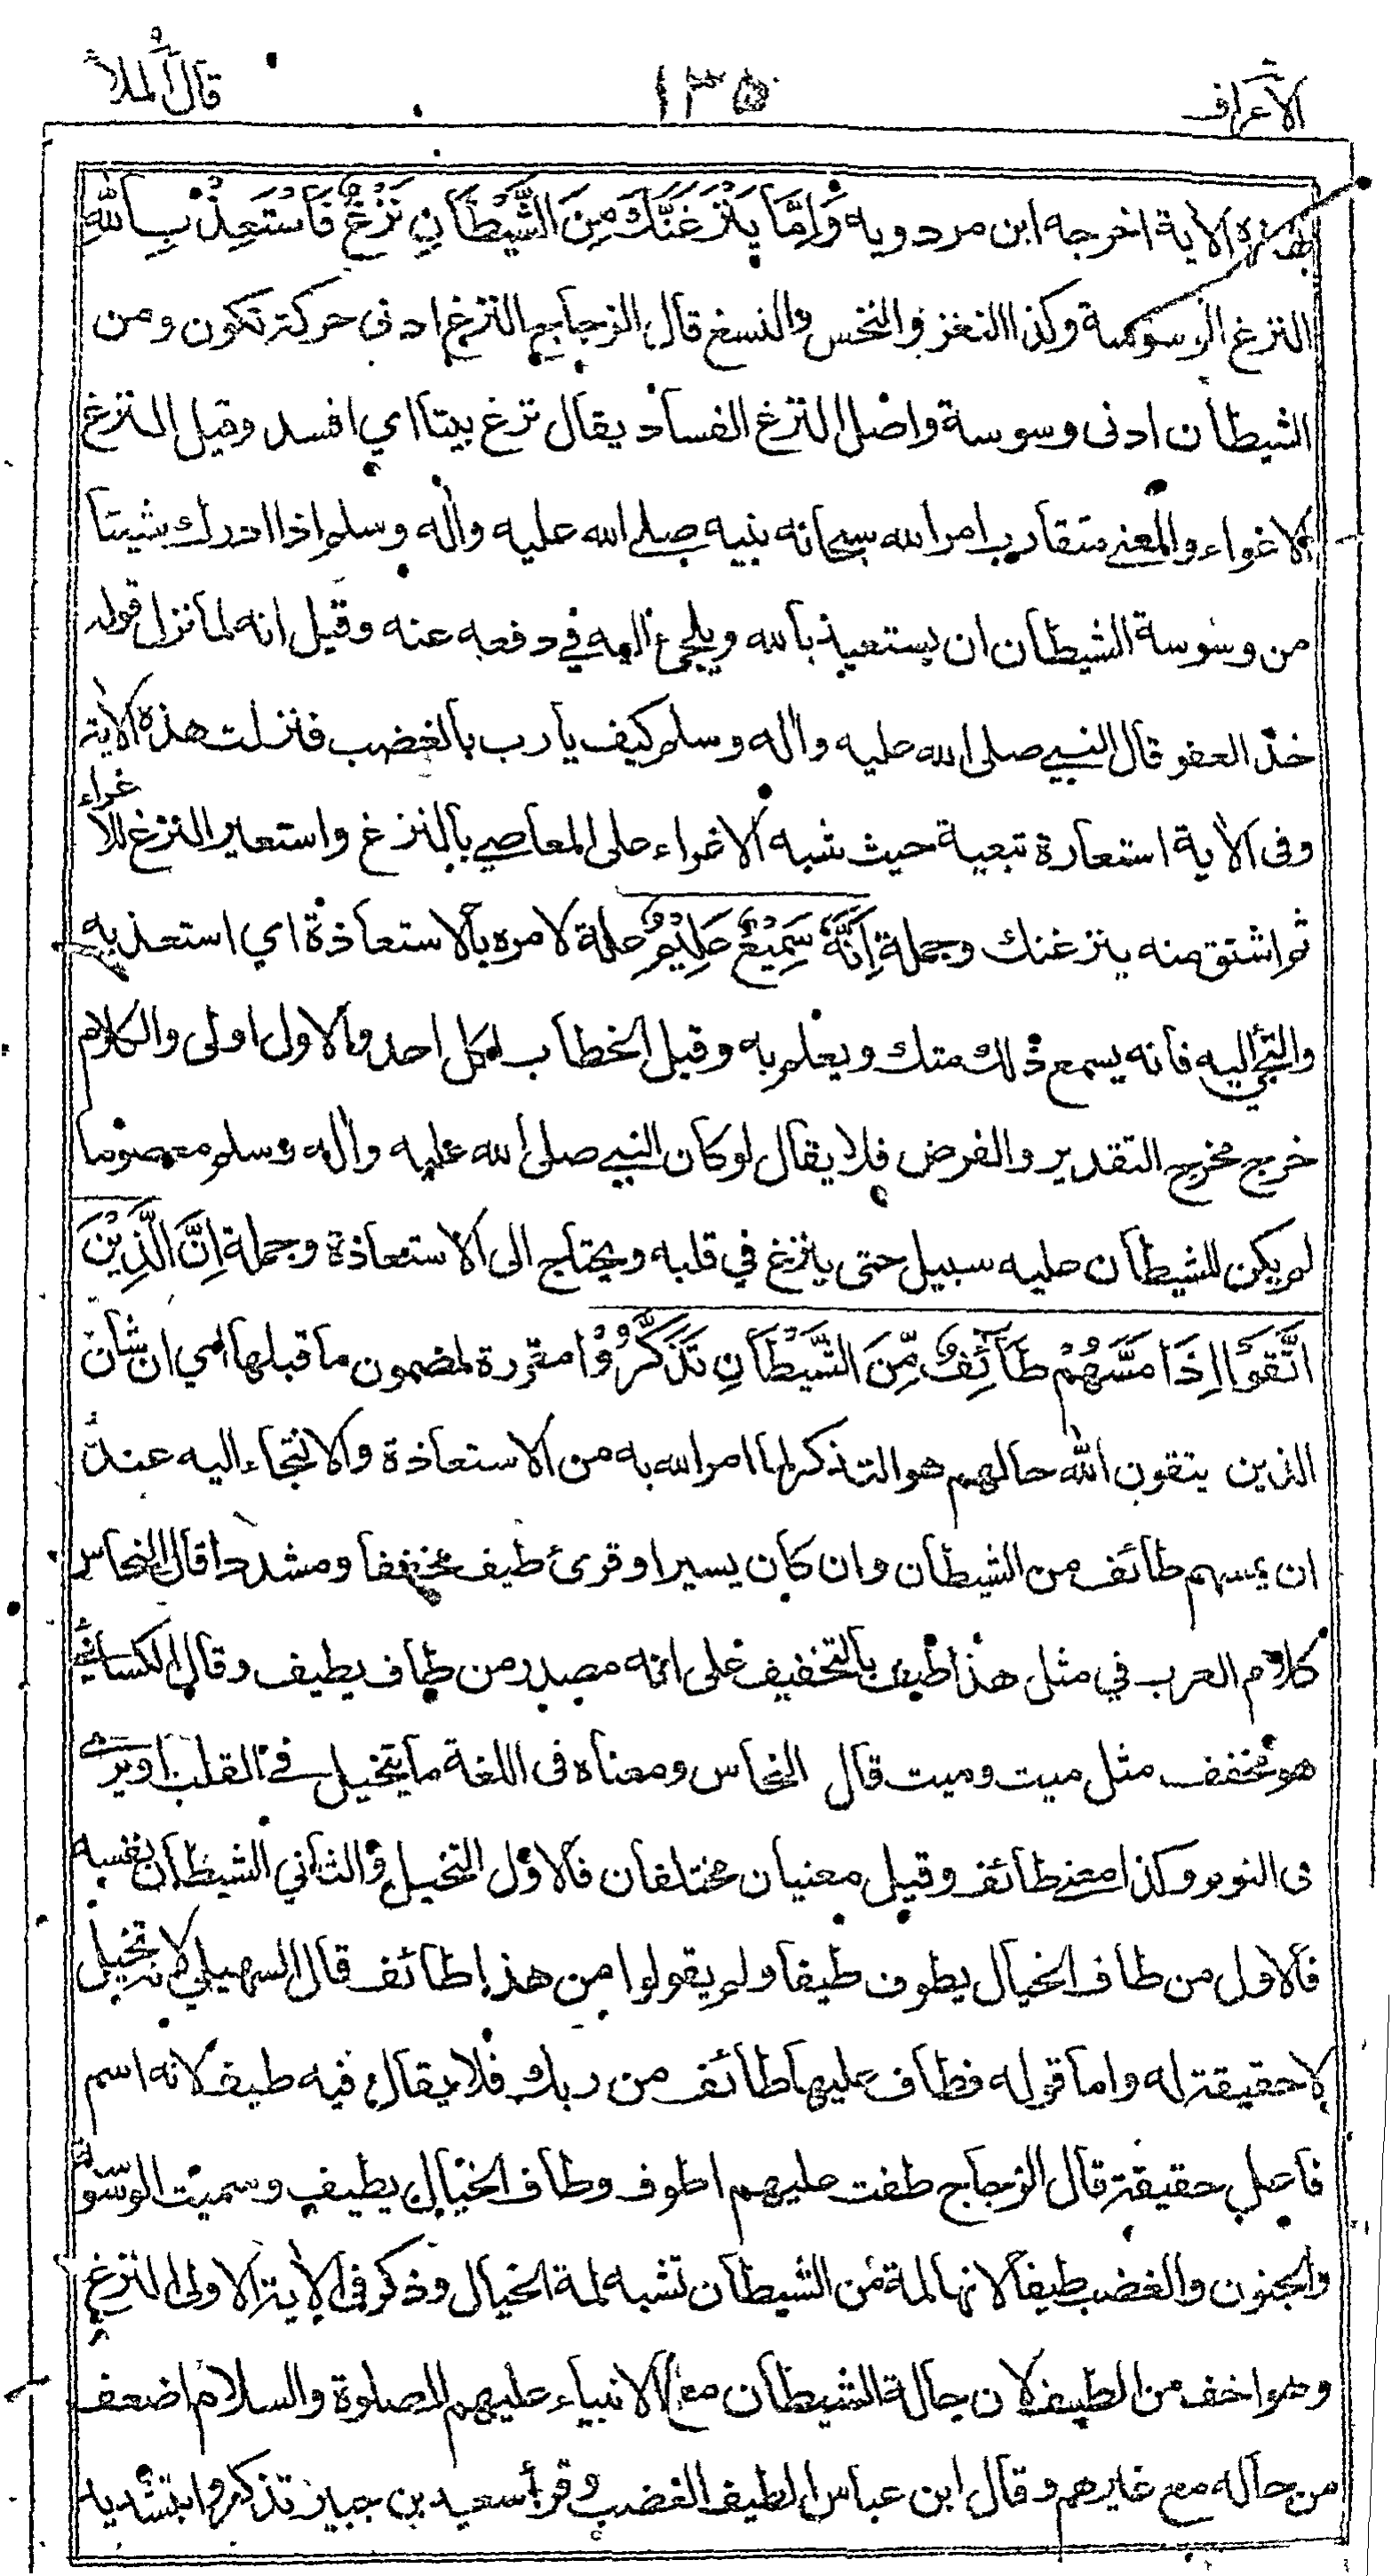 الاعراف ١٣٥ قال الملأ
بهذه الأية اخرجه ابن مردويه وَاِمَّا يَنْزَغَنَّكَ مِنَ الشَّيْطَانِ نَزْغٌ فَاسْتَعِذْ بِاللهِ
النزغ الوسوسة وكذا النغز والنخس والنسغ قال الزجاج النزغ ادنى حركة تكون ومن
الشيطان ادنى وسوسة واصل النزغ الفساد يقال نزغ بيننا اي افسد وقيل النزغ
الاغواء والمعنى متقارب امر الله سبحانه نبيه صلى الله عليه واله وسلم اذا ادرك شيئا
من وسوسة الشيطان ان يستعيذ بالله ويلجئ اليه في دفعه عنه وقيل انه لما نزل قوله
خذ العفو قال النبي صلى الله عليه واله وسلم كيف يا رب بالغضب فنزلت هذه الأية
وفى الأية استعارة تبعية حيث شبه الاغراء على المعاصي بالنزغ واستعير النزغ للاغراء
ثم اشتق منه ينزغنك وجملة اِنَّهُ سَمِيْعٌ عَلِيْمٌ علة لامره بالاستعاذة اي استعذ به
والتجئ اليه فانه يسمع ذلك منك ويعلم به وقيل الخطاب لكل احد والاول اولى والكلام
خرج مخرج التقدير والفرض فلا يقال لو كان النبي صلى الله عليه واله وسلم معصوما
لم يكن للشيطان عليه سبيل حتى ينزغ في قلبه ويحتاج الى الاستعاذة وجملة اِنَّ الَّذِيْنَ
اتَّقَوْا اِذَا مَسَّهُمْ طَائِفٌ مِّنَ الشَّيْطَانِ تَذَكَّرُوْا مقررة لمضمون ما قبلها اي ان شأن
الذين يتقون الله حالهم هو التذكر لما امر الله به من الاستعاذة والالتجاء اليه عند
ان يمسهم طائف من الشيطان وان كان يسيرا وقرئ طيف مخففا ومشددا قال النحاس
كلام العرب في مثل هذا طيف بالتخفيف على انه مصدر من طاف يطيف وقال الكسائي
هو مخفف مثل ميت وميت قال النحاس ومعناه فى اللغة ما يتخيل في القلب او يرى
فى النوم وكذا معنى طائف وقيل معنيان مختلفان فالاول التخيل والثاني الشيطان نفسه
فالاول من طاف الخيال يطوف طيفا ولم يقولوا من هذا طائف قال السهيلي لانه تخيل
لا حقيقة له واما قوله فطاف عليها طائف من ربك فلا يقال فيه طيف لانه اسم
فاعل حقيقة قال الزجاج طفت عليهم اطوف وطاف الخيال يطيف وسميت الوسوسة
والجنون والغضب طيفا لانها لمة من الشيطان تشبه لمة الخيال وذكر فى الأية الاولى النزغ
وهو اخف من الطيف لان حالة الشيطان مع الانبياء عليهم الصلوة والسلام اضعف
من حاله مع غيرهم وقال ابن عباس الطيف الغضب وقرأ سعيد بن جبير تذكروا بتشديد